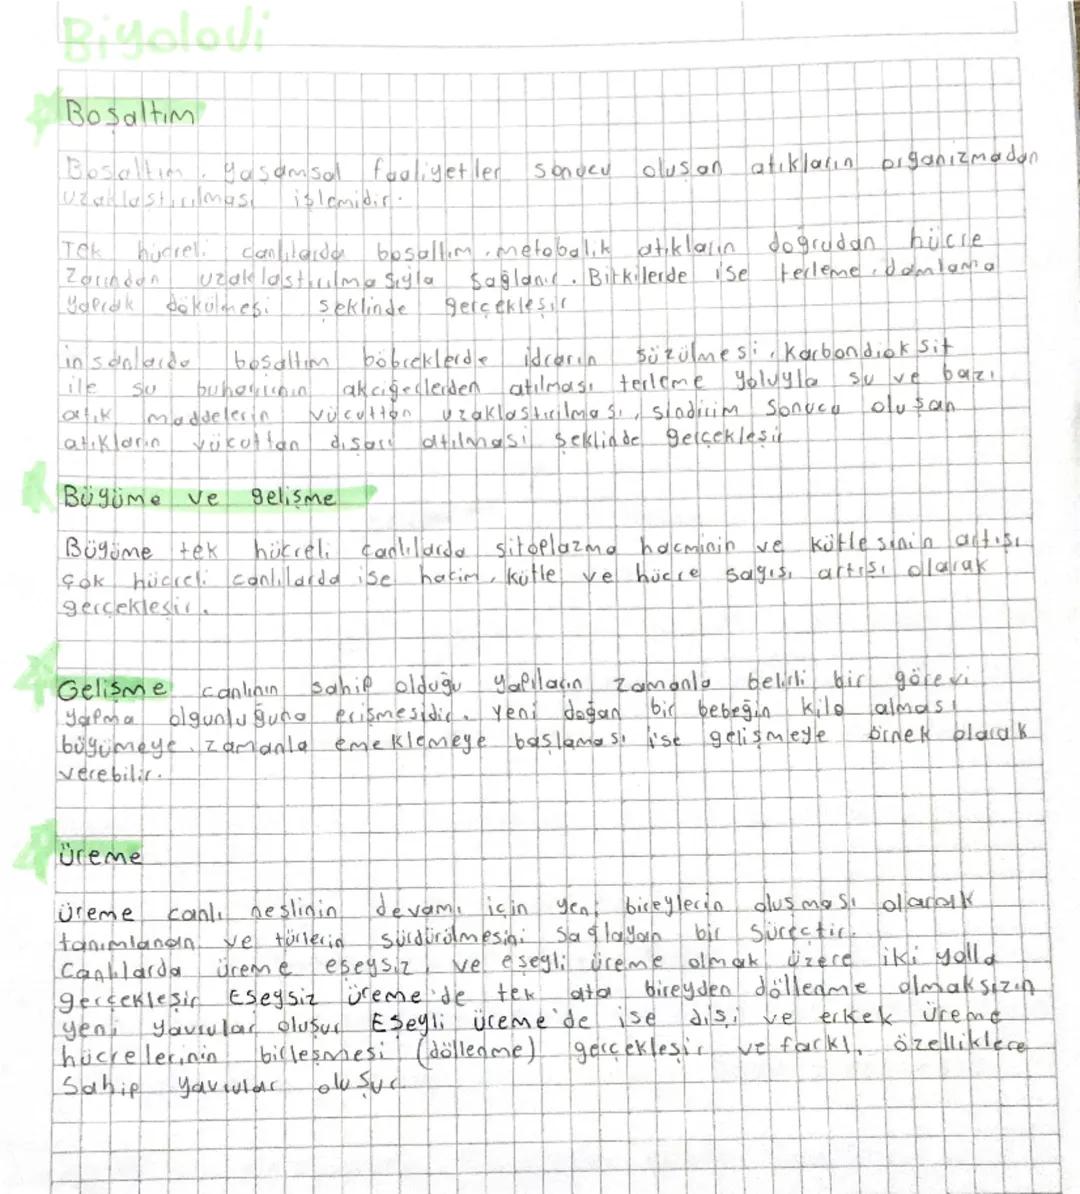 Biyoloji
Boşaltım
Boşaltım, yaşamsal faaliyetler sonucu oluşan atıkların organizmadan
uzaklaştırılması işlemidir.
Tek hücreli canlılarda boşaltım, metobalik atıkların doğrudan hücre
Zarından uzaklaştırılmasıyla sağlanır. Bitkilerde ise terleme, damlama
yaprak dökülmesi şeklinde gerçekleşir
insanlarda boşaltım böbreklerde idrarın süzülmesi, karbondioksit
ile su buharının akciğerlerden atılması terleme yoluyla su ve bazı
atık maddelerin vücuttan uzaklaştırılması, sindirim sonucu oluşan
atıkların vücuttan dışarı atılması şeklinde gerçekleşir
Büyüme ve gelişme
Büyüme tek hücreli canlılarda sitoplazma hacminin ve kütlesinin artışı
çok hücreli canlılarda ise hacim, kütle ve hücre sayısı artışı olarak
gerçekleşir.
Gelişme canlının sahip olduğu yapıların zamanla belirli bir görevi
yapma olgunluğuna erişmesidir. Yeni doğan bir bebeğin kilo alması
büyümeye, zamanla emeklemeye başlaması ise gelişmeye örnek olarak
verebilir.
üreme
üreme canlı neslinin devamı için yeni bireylerin oluşması olarak
tanımlanan ve türlerin sürdürülmesini sağlayan bir süreçtir.
Canlılarda üreme eşeysiz ve eşeyli üreme olmak üzere iki yolla
gerçekleşir Eşeysiz üreme'de tek ata bireyden döllenme olmaksızın
yeni yavrular oluşur Eşeyli üreme'de ise dişi ve erkek üreme
hücrelerinin birleşmesi (döllenme) gerçekleşir ve farklı özelliklere
Sahip yavrular oluşur